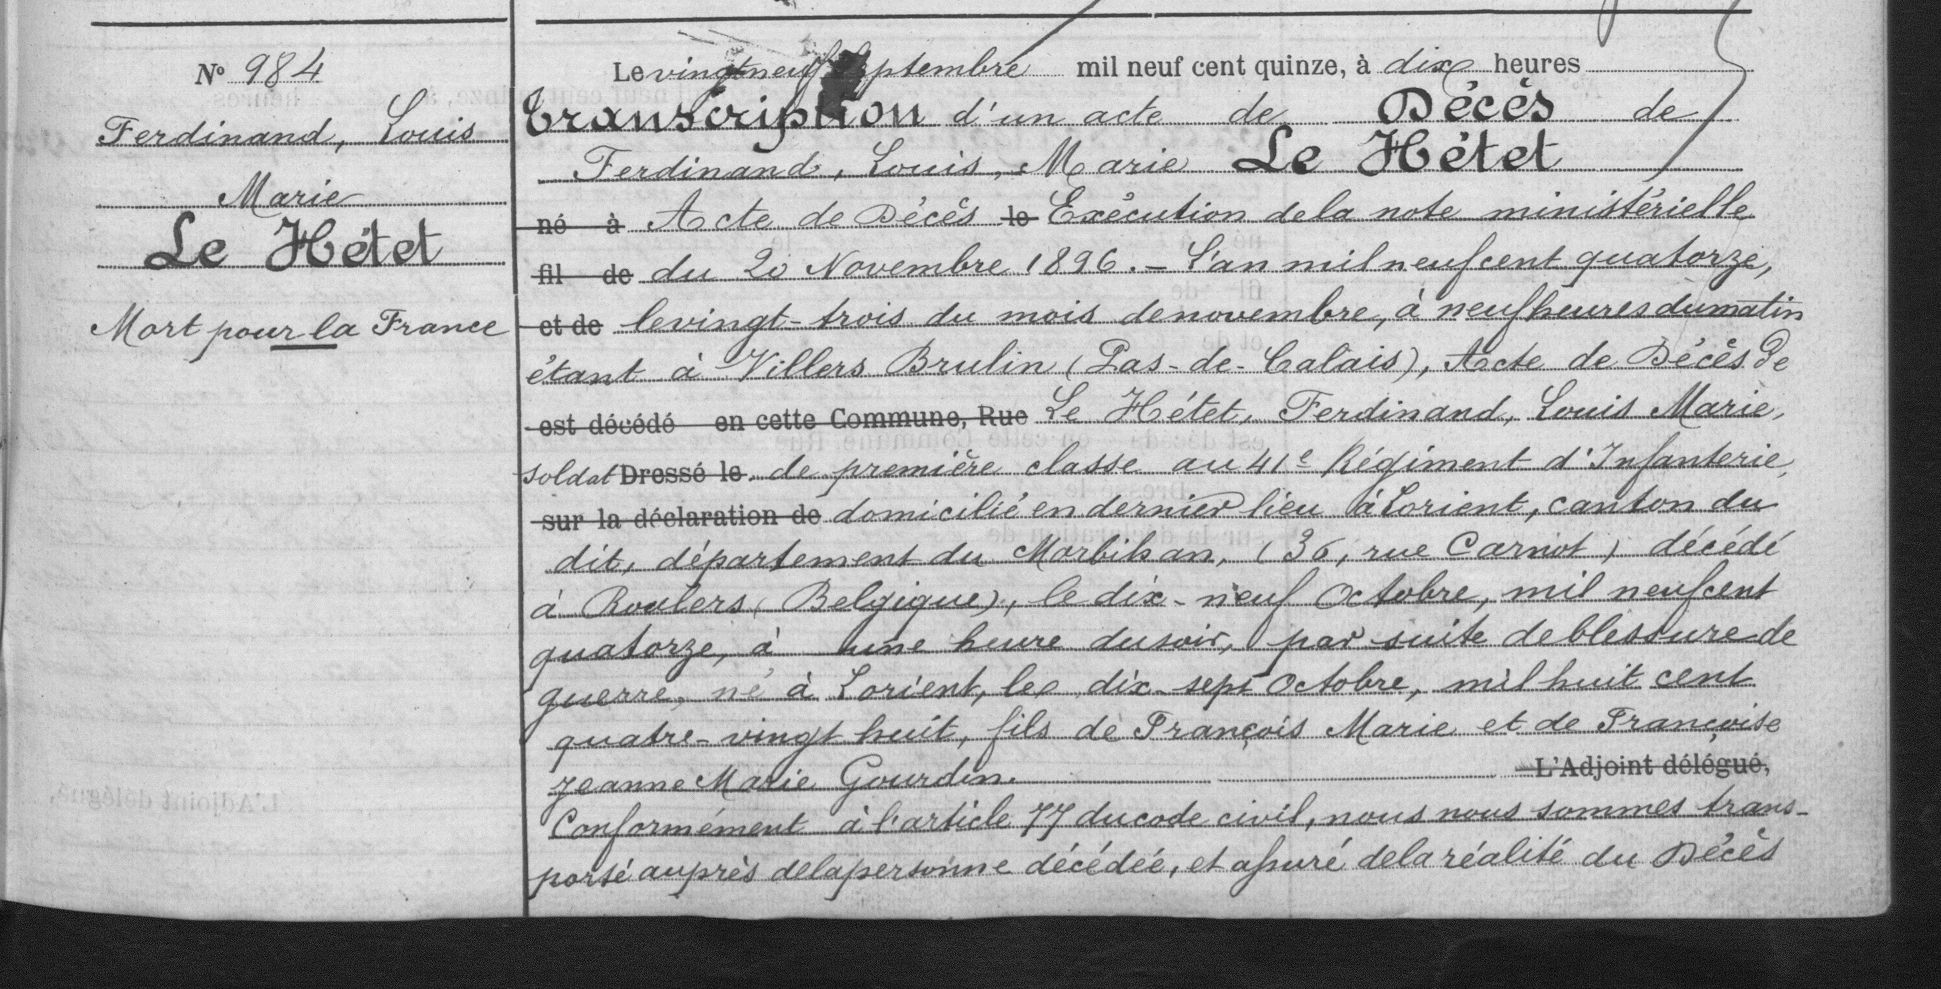 N° 984
Ferdinand, Louis
Marie
Le Hétet
Mort pour la France
Le vingt neuf septembre mil neuf cent quinze, à dix heures
Transcription d'un acte de Décès de
Ferdinand, Louis, Marie Le Hétet
né à Acte de Décès le Exécution de la note ministérielle
fil de du 20 Novembre 1896. _ L'an mil neuf cent quatorze,
et de le vingt-trois du mois de novembre, à neuf heures du matin
étant à Villers Brulin (Pas-de-Calais), Acte de Décès de
est décédé en cette Commune, Rue Le Hétet, Ferdinand, Louis Marie,
soldat Dressé le de première classe au 41e Régiment d'Infanterie,
sur la déclaration de domicilié en dernier lieu à Lorient, canton du
dit, département du Morbihan, (36, rue Carnot) décédé
à Roulers (Belgique), le dix-neuf Octobre, mil neuf cent
quatorze, à une heure du soir, par suite de blessure de
guerre, né à Lorient, le dix-sept Octobre, mil huit cent
quatre-vingt huit, fils de François Marie et de Françoise
Jeanne Marie Gourdin.
L'Adjoint délégué,
Conformément à l'article 77 du code civil, nous nous sommes trans-
porté auprès de la personne décédée, et assuré de la réalité du Décès